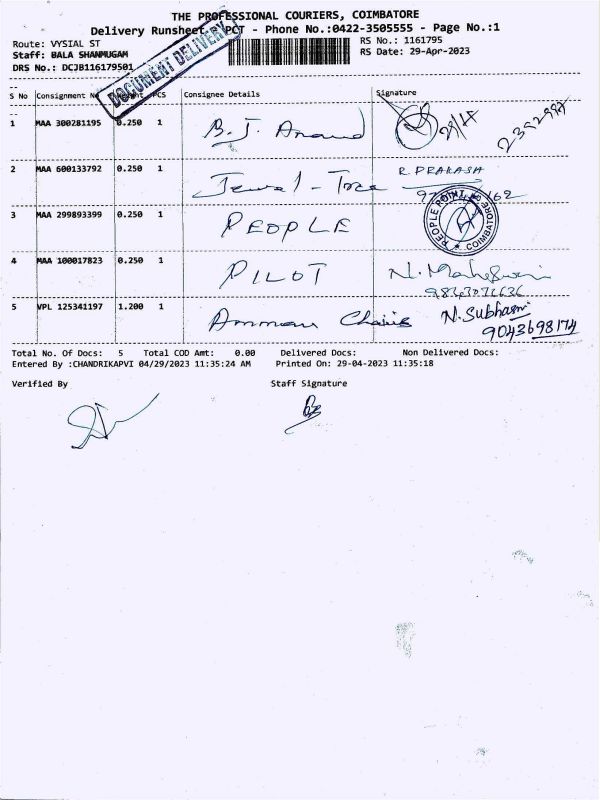 THE PROFESSIONAL COURIERS, COIMBATORE
Delivery Runsheet PCT - Phone No.:0422-3505555 - Page No.:1
Route: VYSIAL ST
RS No.: 1161795
Staff: BALA SHANMUGAM
RS Date: 29-Apr-2023
DRS No.: DCJB116179501
DOCUMENT DELIVERY
S No Consignment PCS Consignee Details Signature
1 MAA 300281195 0.250 1 B.J. Anand 29/4 2392997
2 MAA 600133792 0.250 1 Jewel - R. PRAKASH
3 MAA 299893399 0.250 1 PEOPLE
PEOPLE POINT COIMBATORE
4 MAA 100017823 0.250 1 PILOT N. Maheswari
5 VPL 125341197 1.200 1 Amman Chairs N. Subhasri
9043698174
Total No. Of Docs: 5 Total COD Amt: 0.00 Delivered Docs: Non Delivered Docs:
Entered By :CHANDRIKAPVI 04/29/2023 11:35:24 AM Printed On: 29-04-2023 11:35:18
Verified By Staff Signature